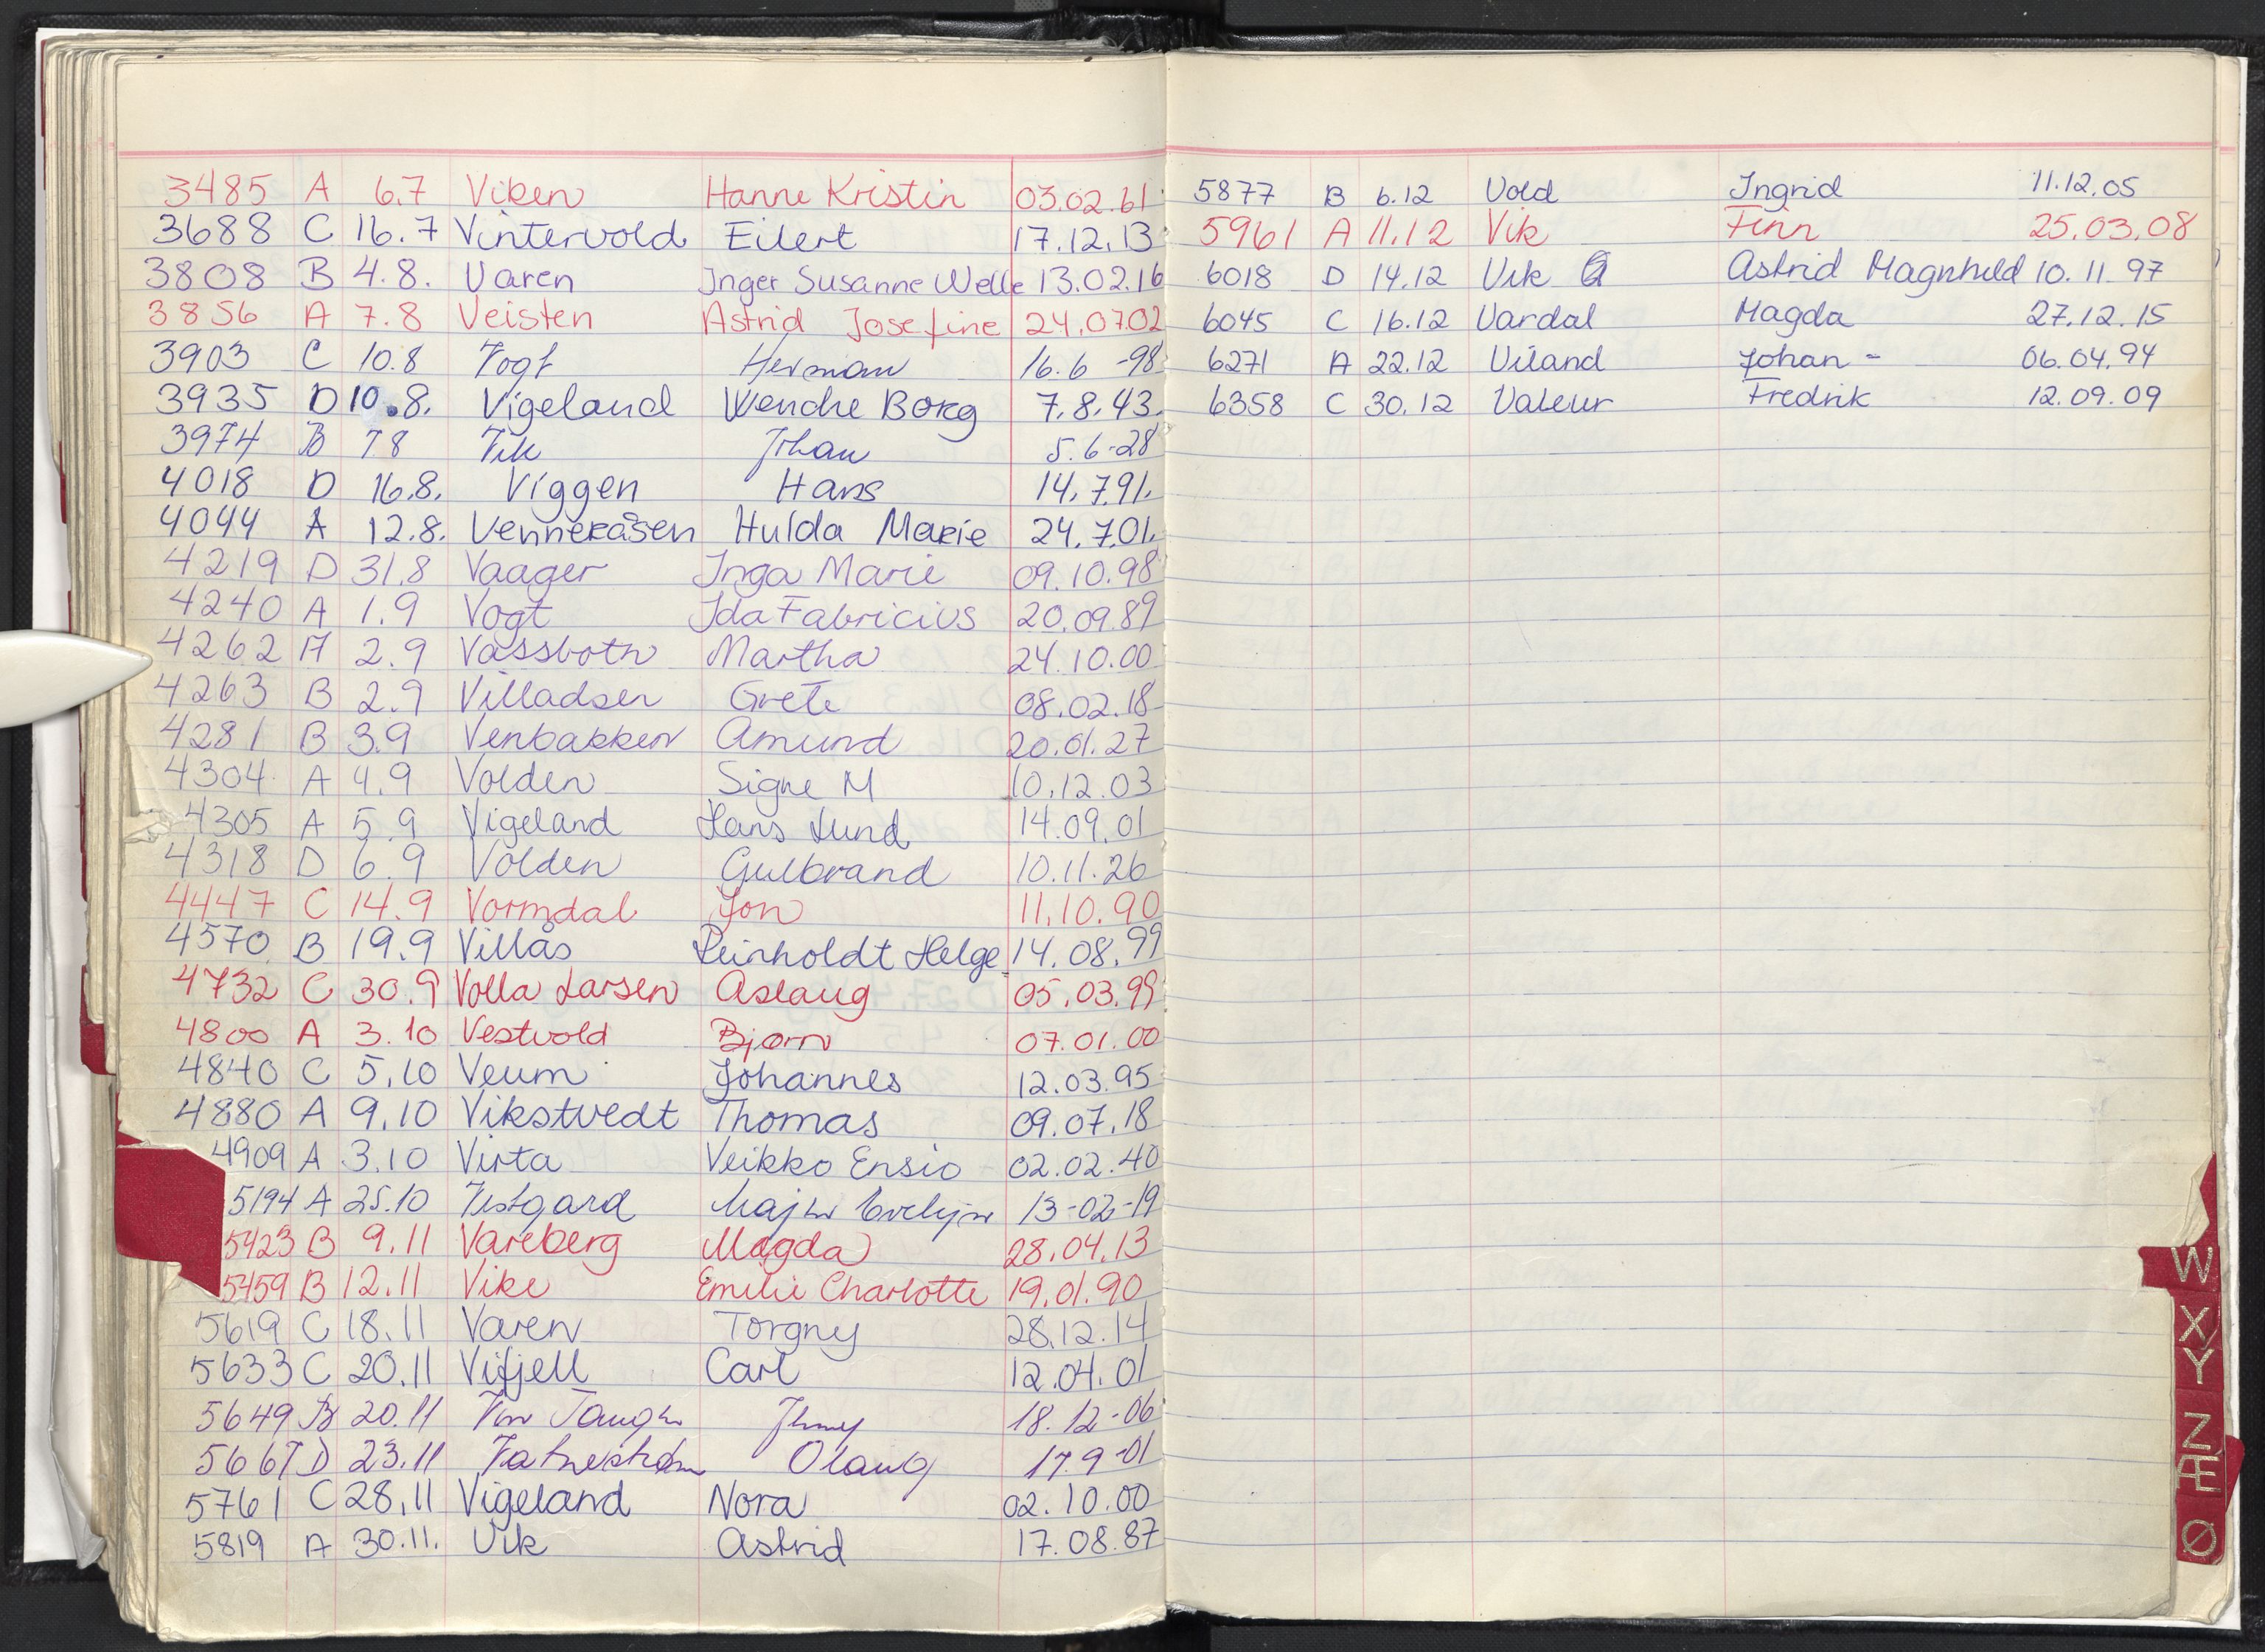 3485 A 6.7 Viken Hanne Kristin 03.02.61
3688 C 16.7 Vintervold Eilert 17.12.13
3808 B 4.8. Varen Inger Susanne Welle 13.02.16
3856 A 7.8 Veisten Astrid Josefine 24.07.02
3903 C 10.8 Vogt Herman 16.6-98
3935 D 10.8. Vigeland Wenche Borg 7.8.43.
3974 B 7 8 Vik Johan 5.6-28
4018 D 16.8. Viggen Hans 14.7.91.
4044 A 12.8. Venneråsen Hulda Marie 24.7.01.
4219 D 31.8 Vaager Inga Marie 09.10.98
4240 A 1.9 Vogt Ida Fabricius 20.09.89
4262 A 2.9 Vassbotn Martha 24.10.00
4263 B 2.9 Villadsen Grete 08.02.18
4281 B 3.9 Venbakken Amund 20.01.27
4304 A 4.9 Volden Signe M 10.12.03
4305 A 5.9 Vigeland Hans Lund 14.09.01
4318 D 6.9 Volden Gulbrand 10.11.26
4447 C 14.9 Vormdal Jon 11.10.90
4570 B 19.9 Villås Reinholdt Helge 14.08.99
4732 C 30.9 Volla Larsen Aslaug 05.03.99
4800 A 3.10 Vestvold Bjørn 07.01.00
4840 C 5.10 Veum Johannes 12.03.95
4880 A 9.10 Vikstvedt Thomas 09.07.18
4909 A 3.10 Virta Veikko Ensio 02.02.40
5194 A 25.10 Vestgard Evelyn 13-02-19
5423 B 9.11 Vareberg Magda 28.04.13
5459 B 12.11 Vike Emilie Charlotte 19.01.90
5619 C 18.11 Varen Torgny 28.12.14
5633 C 20.11 Vifjell Carl 12.04.01
5649 B 20.11 18.12-06
5667 D 23.11 Vatnestrøm Olaug 17.9-01
5761 C 28.11 Vigeland Nora 02.10.00
5819 A 30.11. Vik Astrid 17.08.87
5877 B 6.12 Vold Ingrid 11.12.05
5961 A 11.12 Vik Finn 25.03.08
6018 D 14.12 Vik Astrid Magnhild 10.11.97
6045 C 16.12 Vardal Magda 27.12.15
6271 A 22.12 Viland Johan - 06.04.94
6358 C 30.12 Valeur Fredrik 12.09.09
W
X
Y
Z
Æ
Ø